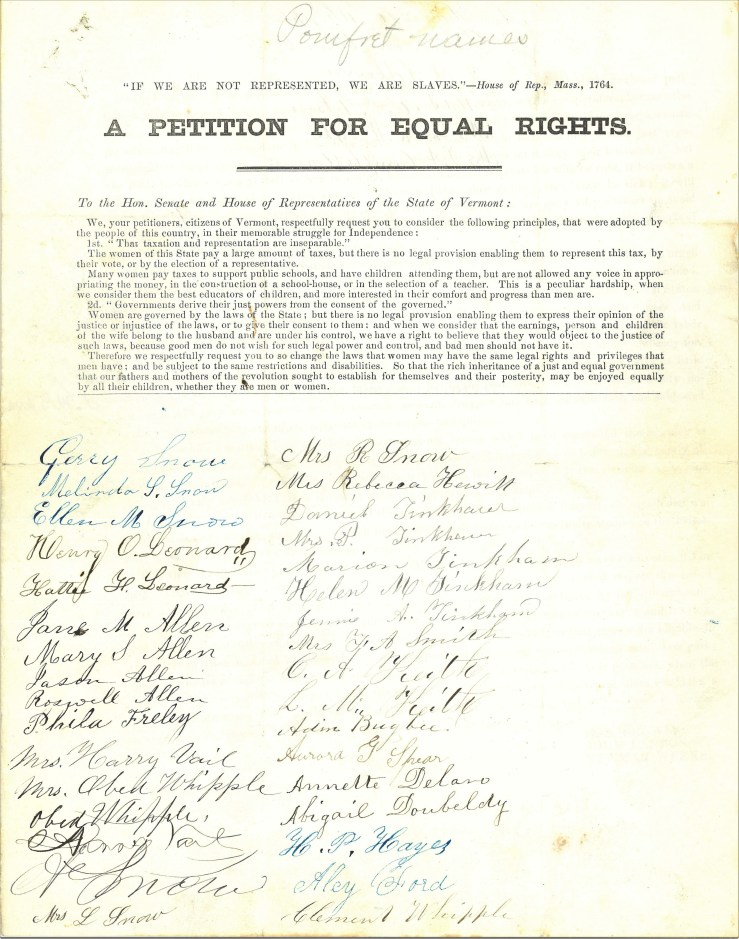 Pomfret names
"IF WE ARE NOT REPRESENTED, WE ARE SLAVES."—House of Rep., Mass., 1764.
A PETITION FOR EQUAL RIGHTS.
To the Hon. Senate and House of Representatives of the State of Vermont:
We, your petitioners, citizens of Vermont, respectfully request you to consider the following principles, that were adopted by
the people of this country, in their memorable struggle for Independence:
1st. "That taxation and representation are inseparable."
The women of this State pay a large amount of taxes, but there is no legal provision enabling them to represent this tax, by
their vote, or by the election of a representative.
Many women pay taxes to support public schools, and have children attending them, but are not allowed any voice in appro-
priating the money, in the construction of a school-house, or in the selection of a teacher. This is a peculiar hardship, when
we consider them the best educators of children, and more interested in their comfort and progress than men are.
2d. "Governments derive their just powers from the consent of the governed."
Women are governed by the laws of the State; but there is no legal provision enabling them to express their opinion of the
justice or injustice of the laws, or to give their consent to them: and when we consider that the earnings, person and children
of the wife belong to the husband and are under his control, we have a right to believe that they would object to the justice of
such laws, because good men do not wish for such legal power and control, and bad men should not have it.
Therefore we respectfully request you to so change the laws that women may have the same legal rights and privileges that
men have; and be subject to the same restrictions and disabilities. So that the rich inheritance of a just and equal government
that our fathers and mothers of the revolution sought to establish for themselves and their posterity, may be enjoyed equally
by all their children, whether they are men or women.
Gerry Snow
Melinda S. Snow
Ellen M Snow
Henry O. Leonard
Hattie H. Leonard
Jane M Allen
Mary S Allen
Jason Allen
Roswell Allen
Phila Freley
Mrs. Harry Vail
Mrs. Obed Whipple
Obed Whipple,
Vail
Snow
Mrs L Snow
Mrs R Snow
Mrs Rebecca Hewitt
Daniel Tinkham
Mrs. P. Tinkham
Marion Tinkham
Helen M Tinkham
Jennie A. Tinkham
Mrs A Smith
Bugbee.
Aurora G Spear
Annette Delano
Abigail Doubeldy
H. P. Hayes
Alcy Ford
Clement Whipple